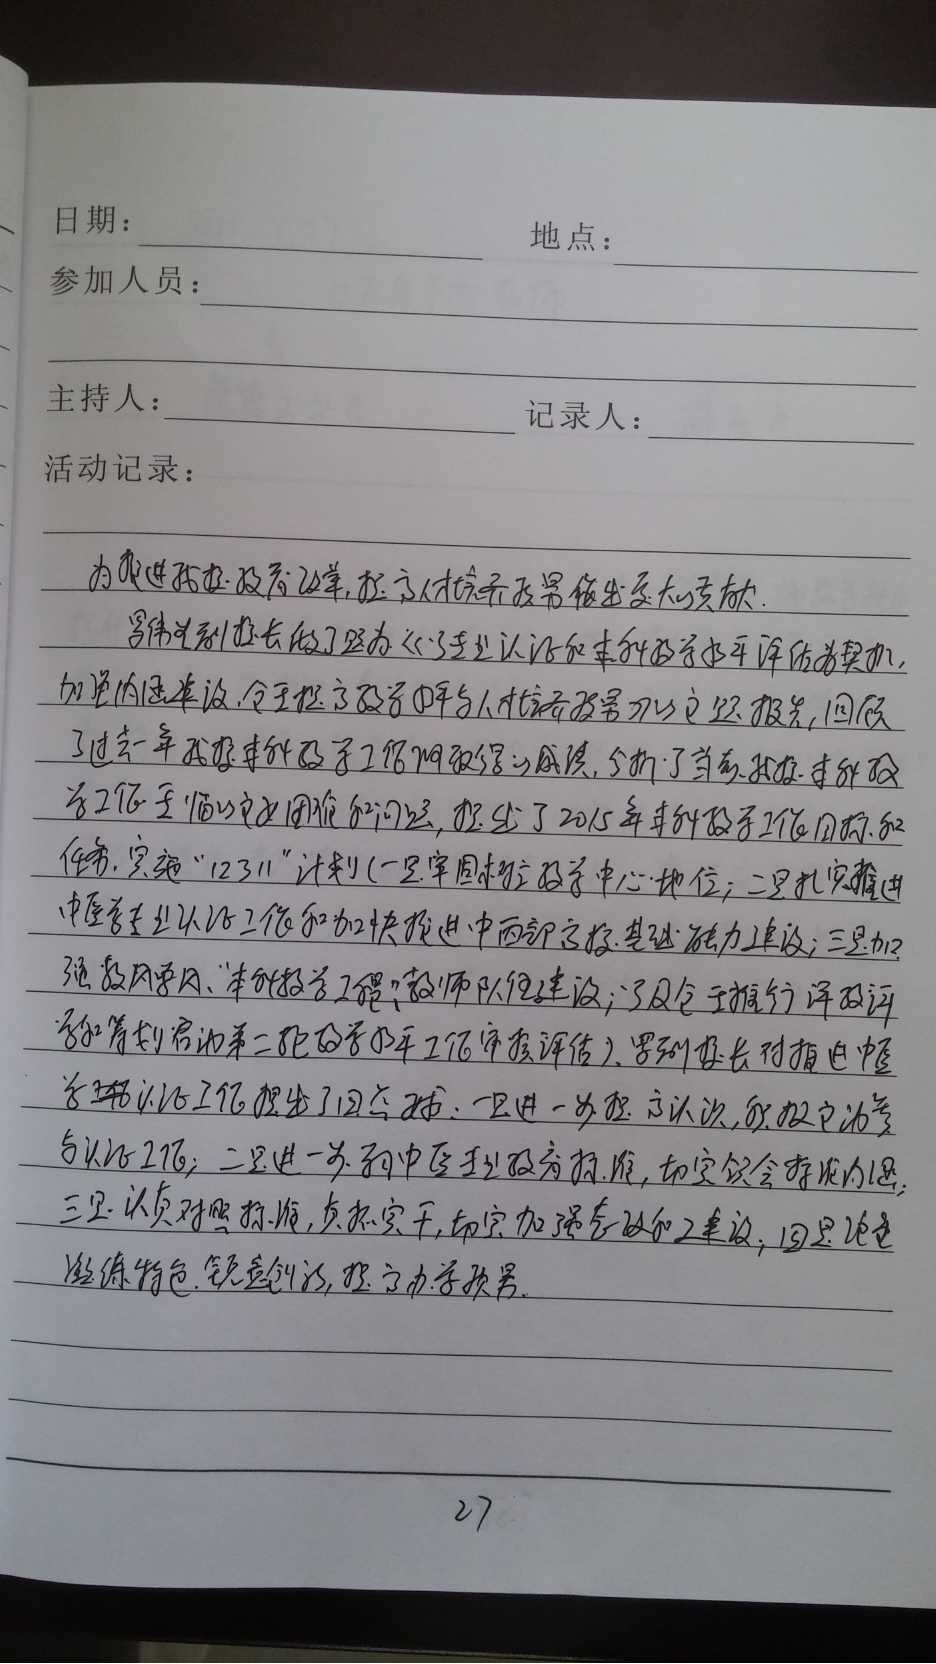 日期：
地点：
参加人员：
主持人：
记录人：
活动记录：
为推进我校教育改革，提高人才培养质量做出更大的贡献.
副校长做了题为《以专业认证和本科教学水平评估为契机，
加强内涵建设，全面提高教学水平与人才培养质量》的主题报告，回顾
了过去一年我校本科教学工作所取得的成绩，分析了当前我校本科教
学工作面临的主要困难和问题，提出了2015年本科教学工作目标和
任务，实施“12311”计划(一是牢固树立教学中心地位；二是扎实推进
中医学专业认证工作和加快推进中西部高校基础能力建设；三是加
强校内外“本科教学工程”、教师队伍建设；以及全面推行评教评
学和筹划启动第二轮教学水平工作审核评估)、副校长对推进中医
学认证工作提出了四点要求：一是进一步提高认识，积极主动参
与认证工作；二是进一步中医专业教育标准，切实领会标准内涵；
三是认真对照标准，真抓实干，切实加强整改和建设；四是注重
凝练特色，锐意创新，提高办学质量.
27